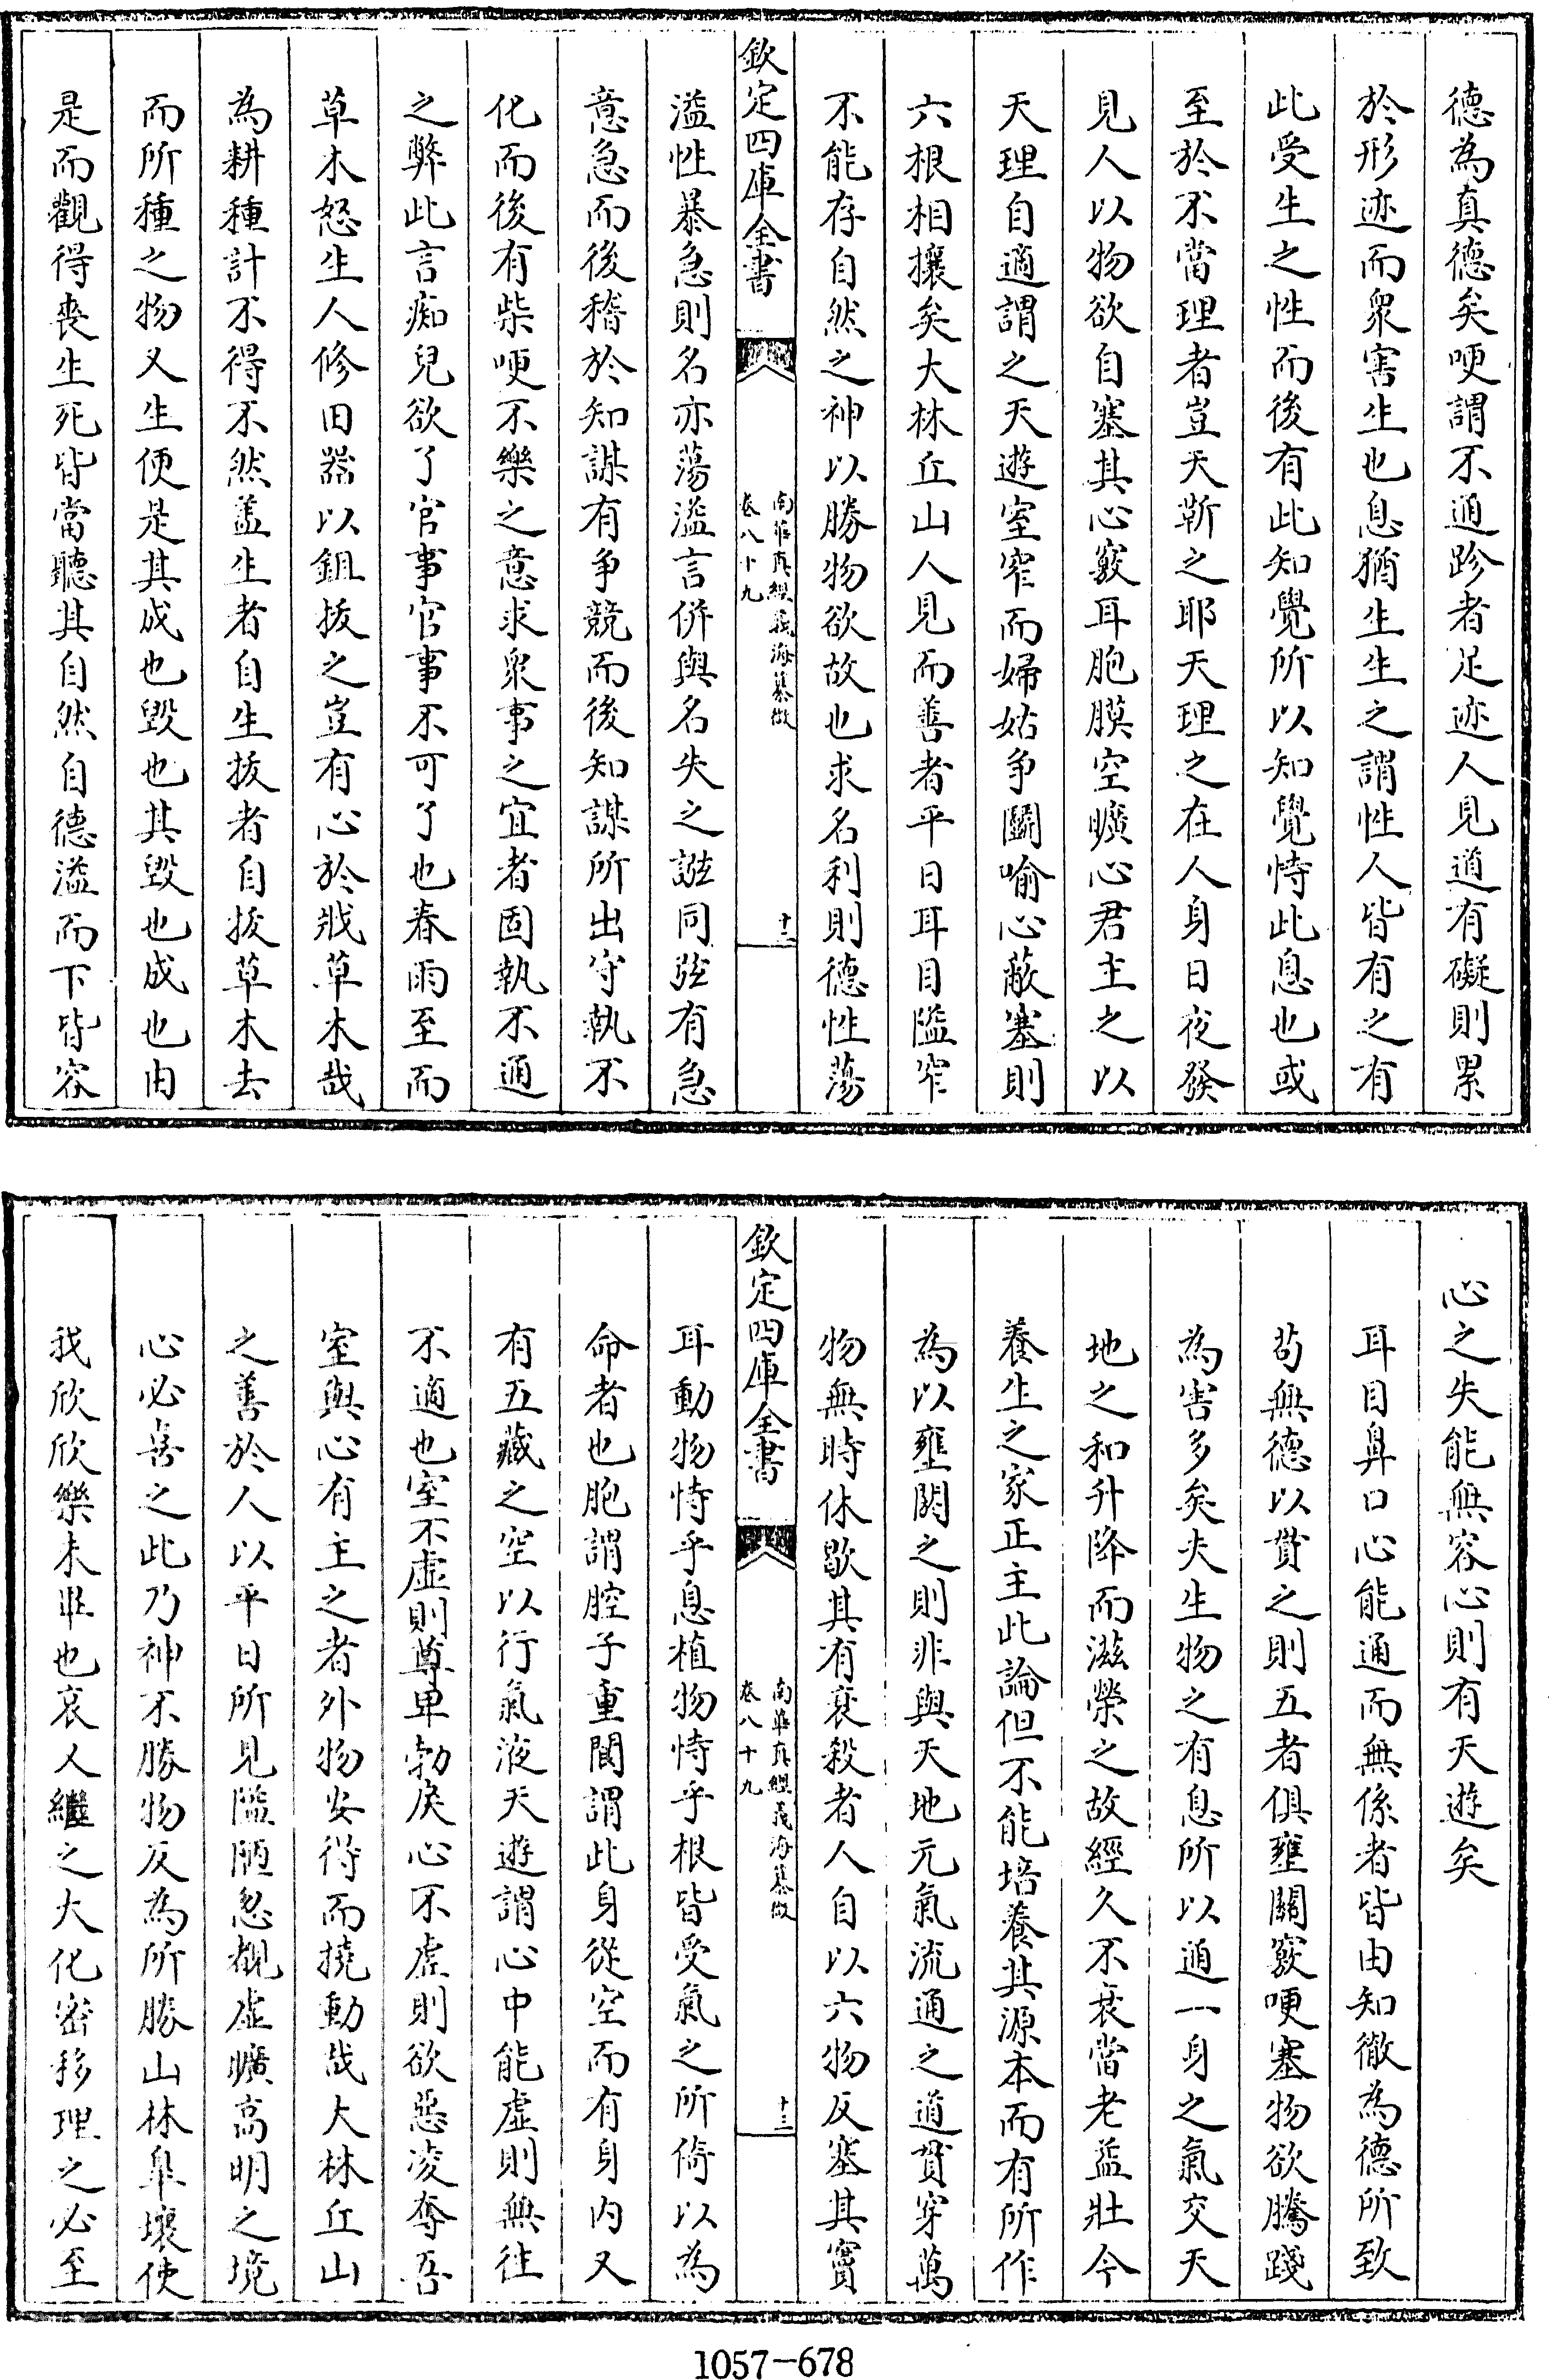 德為真德矣哽謂不通跈者足迹人見道有礙則累
於形迹而衆害生也息猶生生之謂性人皆有之有
此受生之性而後有此知覺所以知覺恃此息也或
至於不當理者豈天靳之耶天理之在人身日夜發
見人以物欲自塞其心竅耳胞膜空曠心君主之以
天理自適謂之天遊室窄而婦姑爭鬭喻心蔽塞則
六根相攘矣大林丘山人見而善者平日耳目隘窄
不能存自然之神以勝物欲故也求名利則德性蕩
欽定四庫全書
南華真經義海纂微
卷八十九
十二
溢性暴急則名亦蕩溢言併與名失之誸同弦有急
意急而後稽於知謀有爭競而後知謀所出守執不
化而後有柴哽不樂之意求衆事之宜者固執不通
之弊此言痴兒欲了官事官事不可了也春雨至而
草木怒生人修田器以鉏拔之豈有心於戕草木哉
為耕種計不得不然盖生者自生拔者自拔草木去
而所種之物又生便是其成也毀也其毀也成也由
是而觀得喪生死皆當聽其自然自德溢而下皆容
心之失能無容心則有天遊矣
耳目鼻口心能通而無係者皆由知徹為德所致
苟無德以貫之則五者俱壅關竅哽塞物欲騰踐
為害多矣夫生物之有息所以通一身之氣交天
地之和升降而滋榮之故經久不衰當老益壯今
養生之家正主此論但不能培養其源本而有所作
為以壅閼之則非與天地元氣流通之道貫穿萬
物無時休歇其有衰殺者人自以六物反塞其竇
欽定四庫全書
南華真經義海纂微
卷八十九
十三
耳動物恃乎息植物恃乎根皆受氣之所倚以為
命者也胞謂腔子重閬謂此身從空而有身内又
有五藏之空以行氣液天遊謂心中能虛則無往
不適也室不虛則尊卑勃戾心不虛則欲惡凌奪吾
室與心有主之者外物安得而撓動哉大林丘山
之善於人以平日所見隘陋忽覩虛曠高明之境
心必喜之此乃神不勝物反為所勝山林臯壤使
我欣欣樂未畢也哀又繼之大化密移理之必至
1057-678